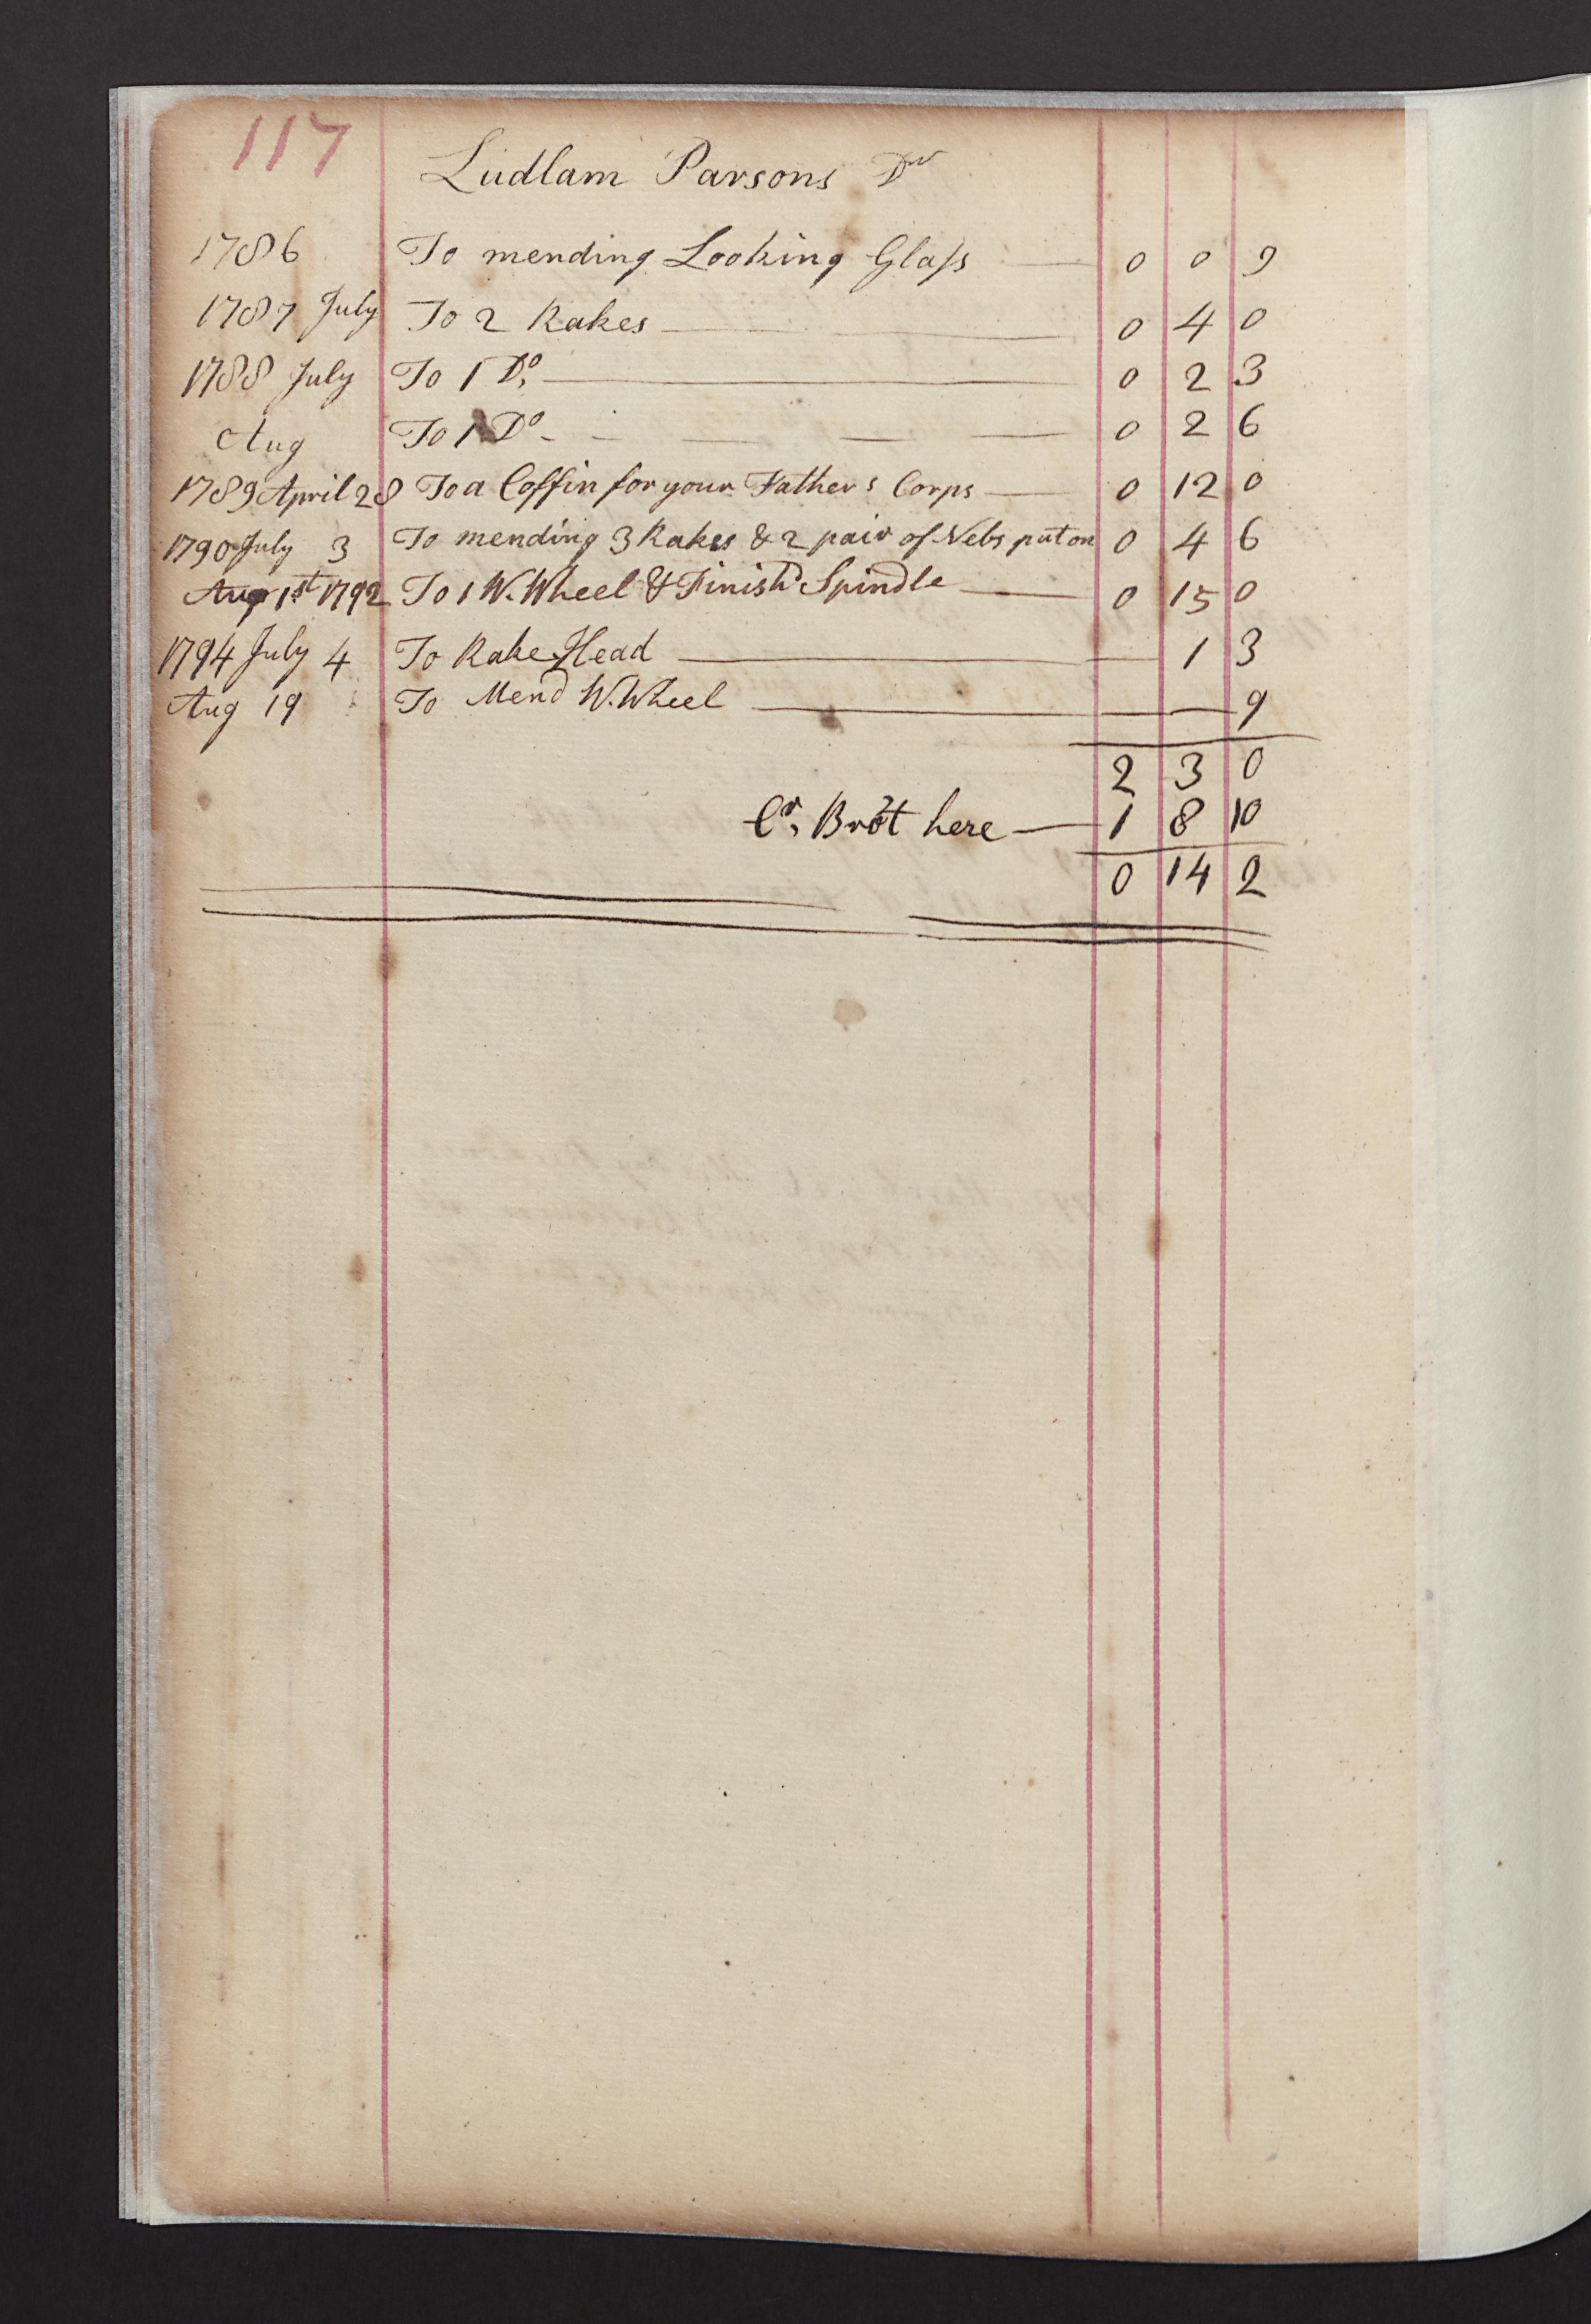 117
Ludlam Parsons Dr
1786 To mending Looking Glaſs 0 0 9
1787 July To 2 Rakes 0 4 0
1788 July To 1 Do 0 2 3
Aug To 1 Do 0 2 6
1789 April 28 To a Coffin for your Father s Corps 0 12 0
1790 July 3 To mending 3 Rakes & 2 pair of Nebs put on 0 4 6
Aug 1st 1792 To 1 W. Wheel & Finishd Spindle 0 15 0
1794 July 4 To Rake Head 1 3
Aug 19 To Mend W. Wheel 9
2 3 0
Cr. Brot here 1 8 10
0 14 2